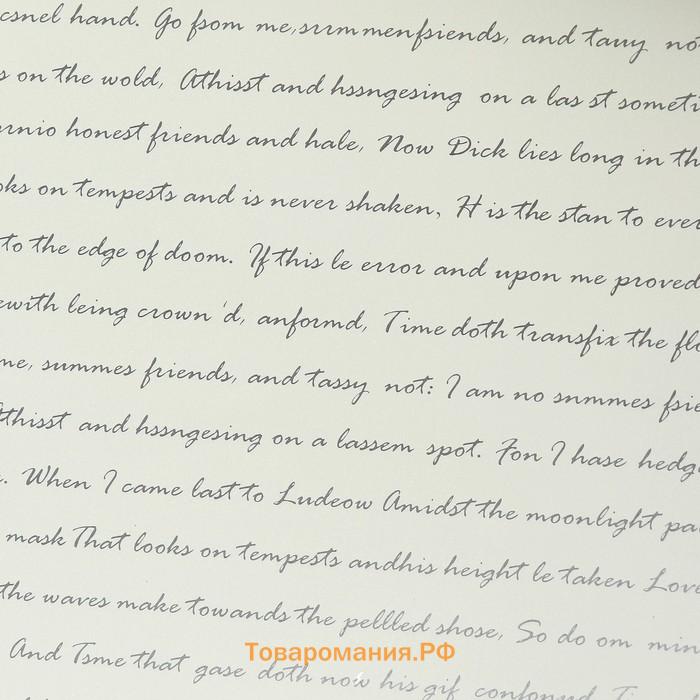 csnel hand. Go fsom me, surmmenfsiends, and tauy no
s on the wold, Athisst and hssngesing on a las st someti
rnio honest friends and hale, Now Dick lies long in th
oks on tempests and is never shaken, H is the stan to ever
to the edge of doom. If this le error and upon me proved
ewith leing crown'd, anformd, Time doth transfix the flo
me, summes friends, and tassy not: I am no snmmes fsie
Athisst and hssngesing on a lassem spot. Fon I hase hedg
. When I came last to Ludeow Amidst the moonlight pa
mask That looks on tempests andhis height le taken Love
the waves make towands the pellled shose, So do om min
And Tsme that gase doth now his gif confonnd Ti
Товаромания.РФ